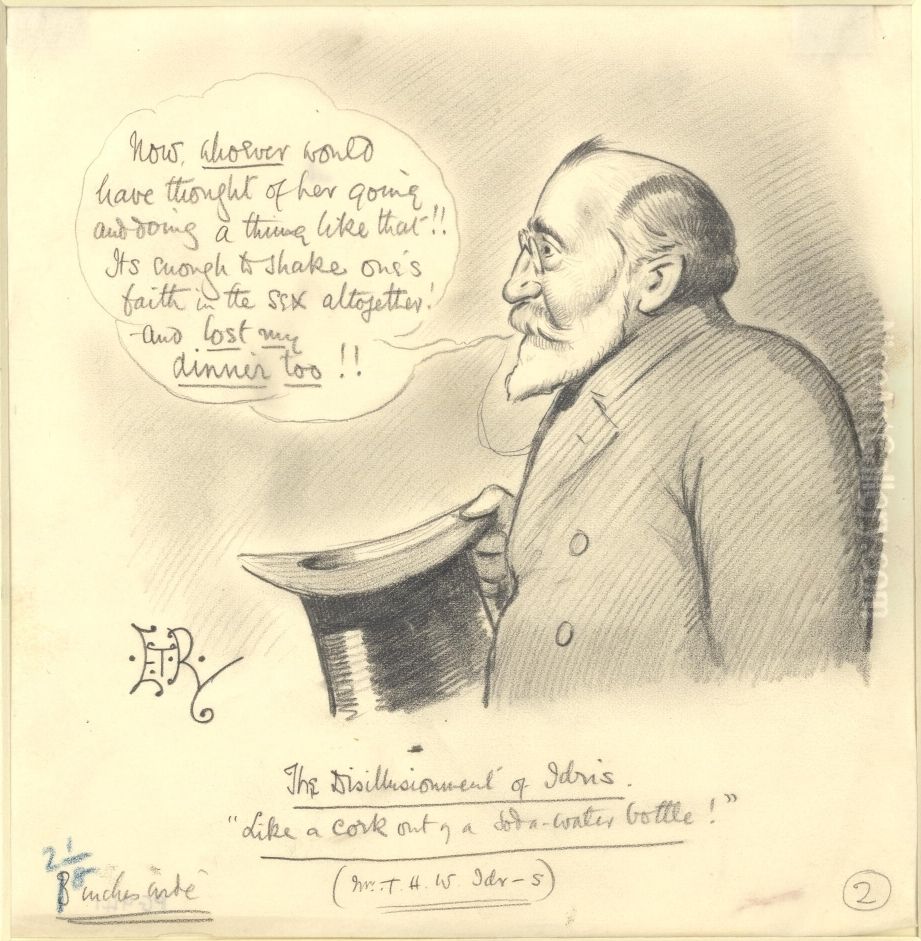 Now, whoever would
have thought of her going
and doing a thing like that!!
Its enough to shake one's
faith in the sex altogether!
-and lost my
dinner too!!
E.T.R.
The Disillusionment of Idris.
"Like a cork out of a soda-water bottle!"
(Mr. T. H. W. Idr-s)
2 1/8
inches wide
2